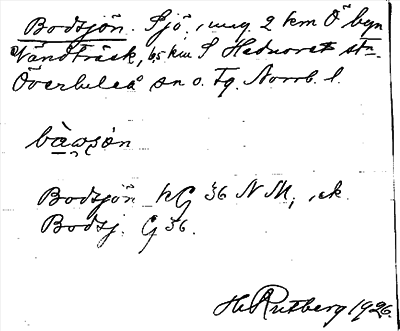 Bodsjön. Sjö, ung. 2 km Ö byn
Vändträsk, 6,5 km S Hednoret stn.
Överluleå sn o. Tg. Norrb. l.
bàwʂǝn
Bodsjön hG 36 NM, ek.
Bodsj. G 36.
H. Rutberg 1926.